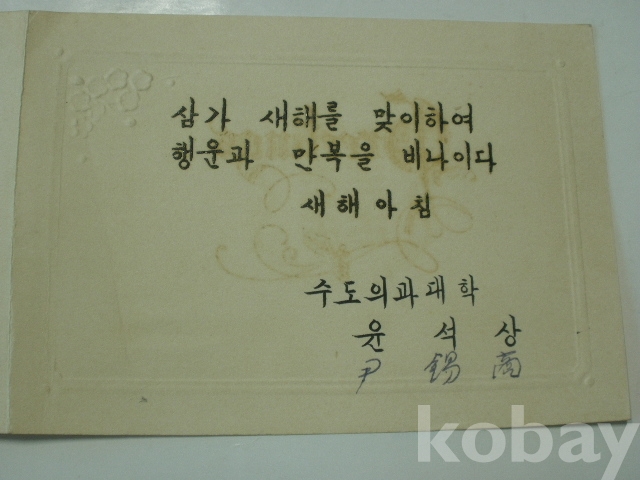 삼가 새해를 맞이하여
행운과 만복을 비나이다
새해아침
수도의과대학
윤석상
尹錫商
kobay